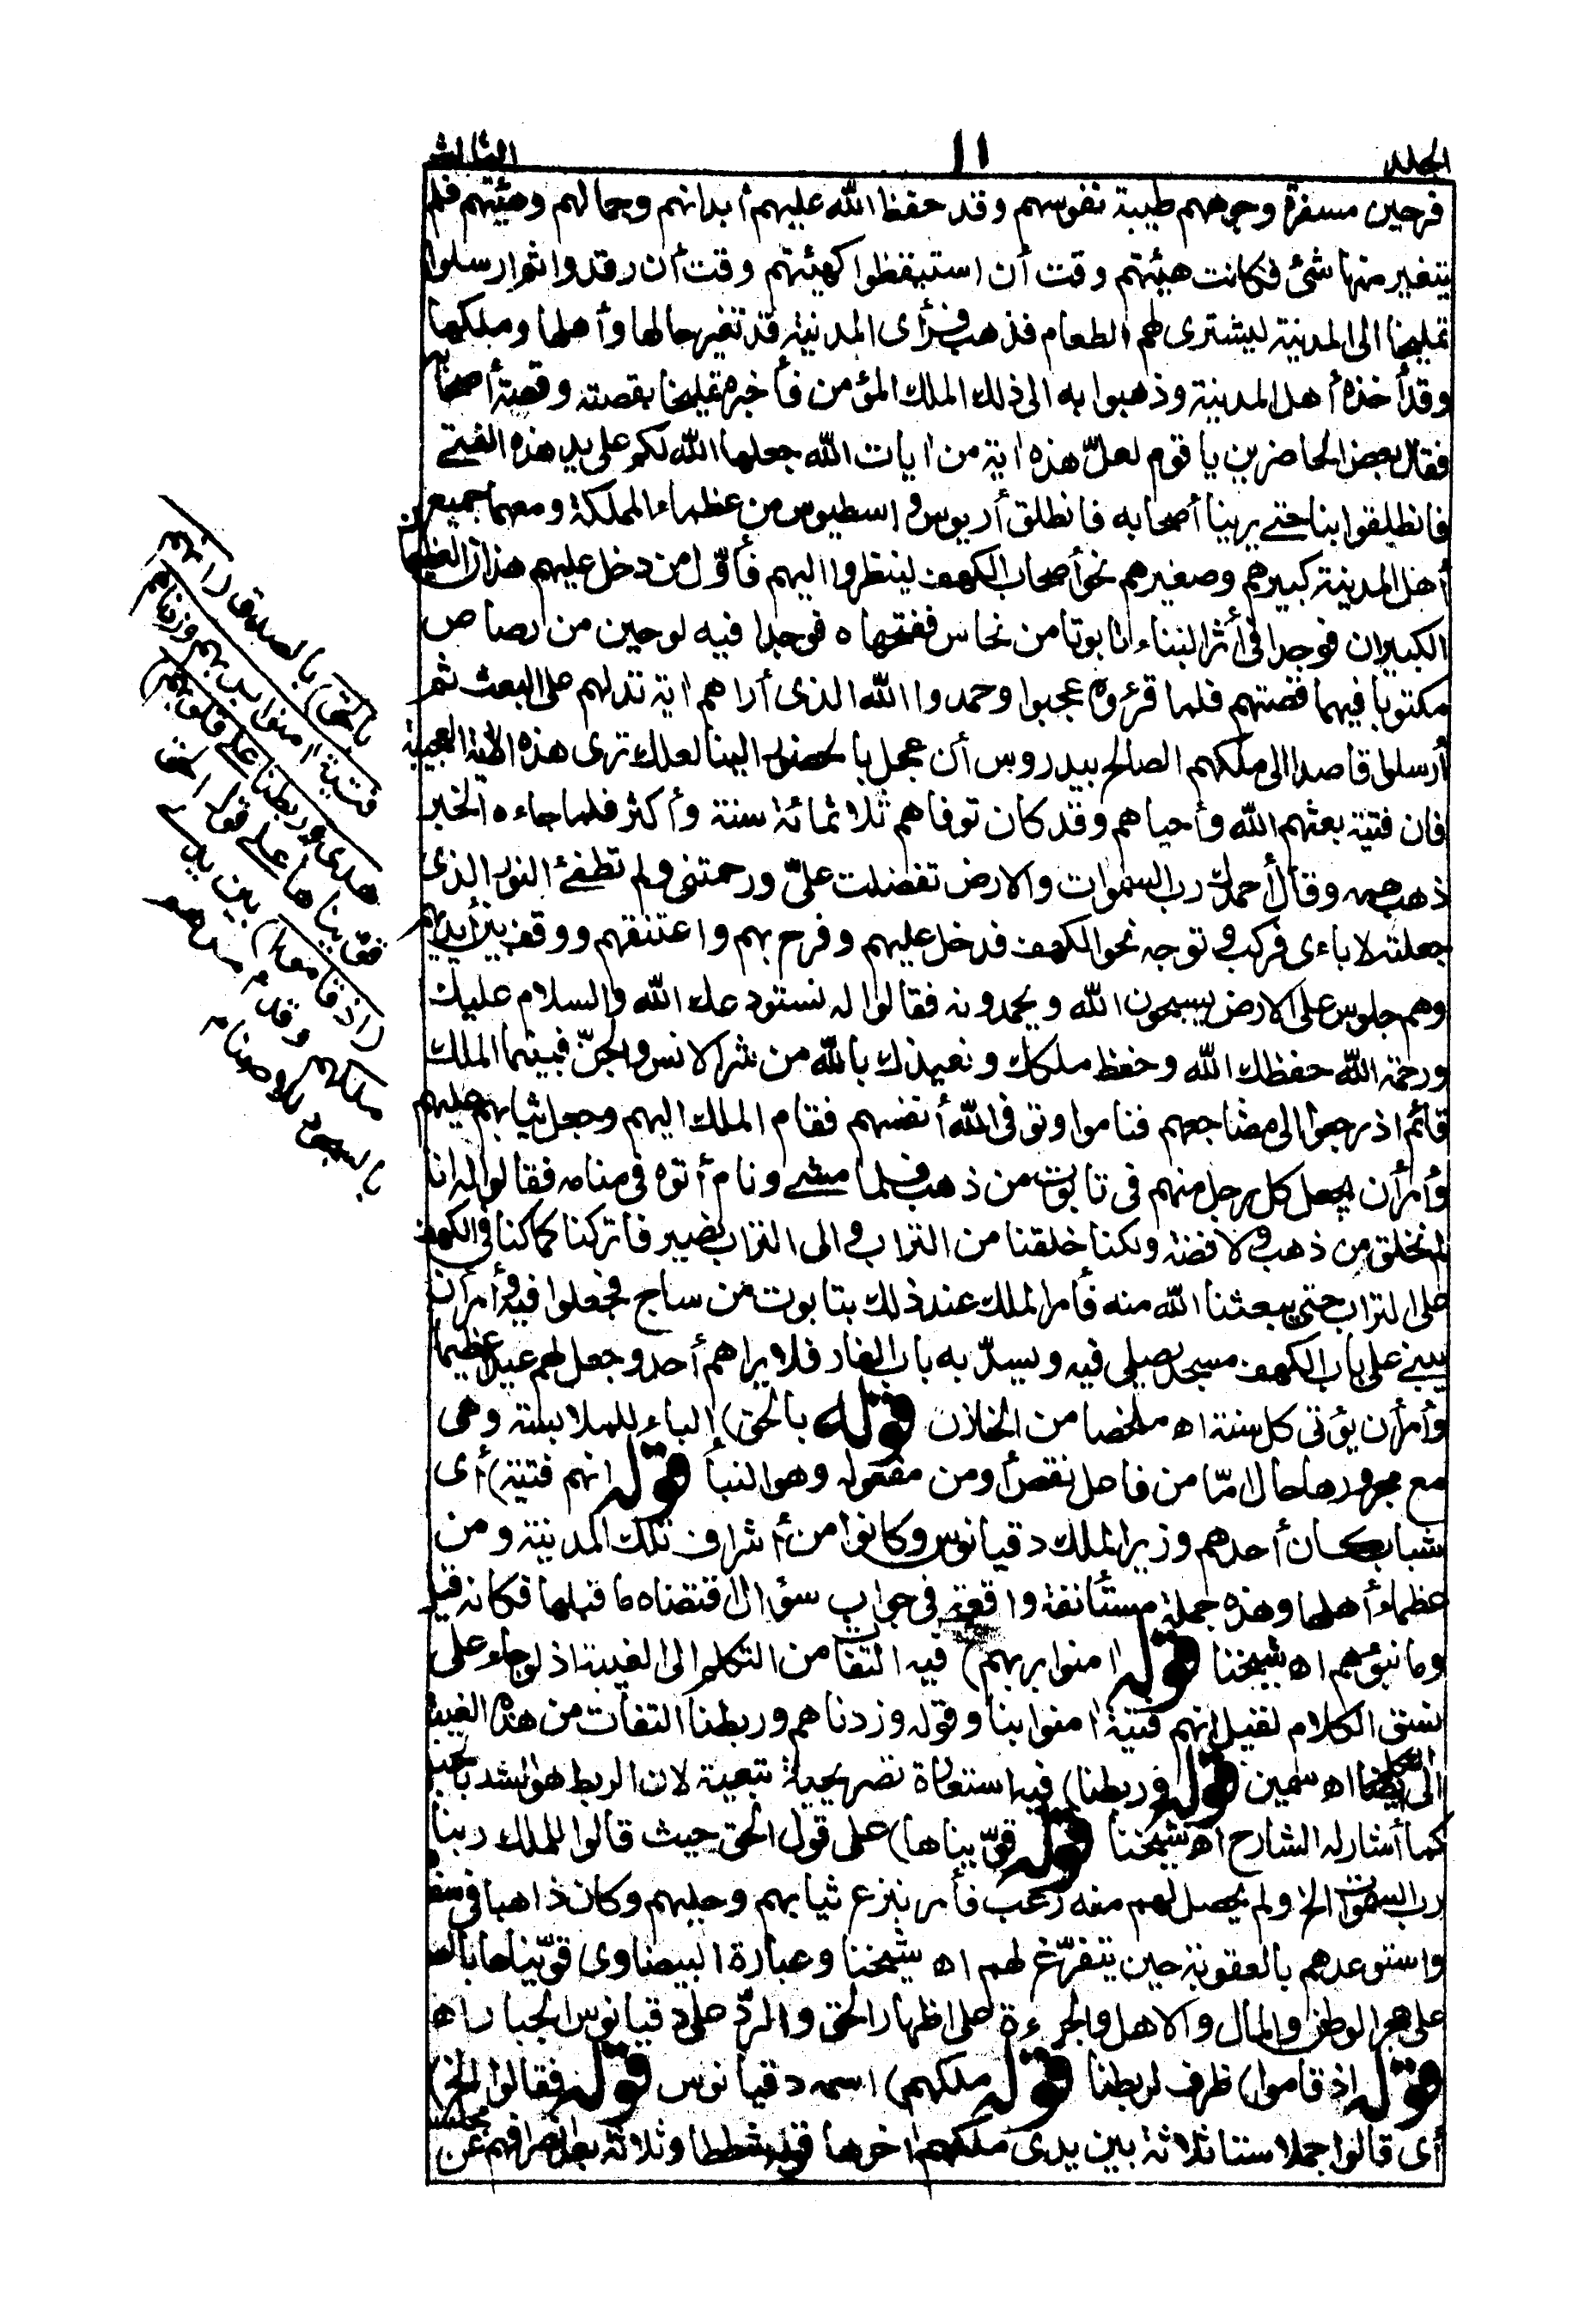 الجلد ١١ الثالث
فرحين مسفرة وجوههم طيبة نفوسهم وقد حفظ الله عليهم أبدانهم وجمالهم وهيئتهم فلم
يتغير منها شئ فكانت هيئتهم وقت أن استيقظوا كهيئتهم وقت أن رقدوا ثم ارسلوا
تمليخا الى المدينة ليشترى لهم الطعام فذهب فرأى المدينة قد تغير حالها وأهلها وملكها
وقد أخذه أهل المدينة وذهبوا به الى ذلك الملك المؤمن فأخبره تمليخا بقصته وقصة أصحابه
فقال بعض الحاضرين يا قوم لعلّ هذه اية من ايات الله جعلها الله لكم على يد هذه الفتى
فانطلقوا بنا حتى يرينا أصحابه فانطلق أريوس و اسطيوس من عظماء المملكة ومعهما جميع
أهل المدينة كبيرهم وصغيرهم نحو أصحاب الكهف لينظروا اليهم فأوّل من دخل عليهم هذان العظيمان
الكبيران فوجدا فى أثر البناء تابوتا من نحاس ففتحاه فوجدا فيه لوحين من رصاص
مكتوبا فيهما قصتهم فلما قرؤه عجبوا وحمدوا الله الذى أراهم اية تدلهم على البعث ثم
أرسلوا قاصدا الى ملكهم الصالح بيدروس أن عجل بالحضور الينا لعلك ترى هذه الاية العجيبة
فان فتية بعثهم الله وأحياهم وقد كان توفاهم ثلاثمائة سنة وأكثر فلما جاءه الخبر
ذهب همه وقال أحمدك رب السموات والارض تفضلت علىّ ورحمتنى ولم تطفئ النور الذى
جعلته لاباءى فركب و توجه نحو الكهف فدخل عليهم وفرح بهم واعتنقهم ووقف بين أيديهم
وهم جلوس على الارض يسبحون الله ويحمدونه فقالوا له نستودعك الله والسلام عليك
ورحمة الله حفظك الله وحفظ ملكك ونعيذك بالله من شر الانس والجنّ فبينما الملك
قائم اذ رجعوا الى مضاجعهم فناموا وتوفى الله أنفسهم فقام الملك اليهم وجعل ثيابهم عليهم
وأمر أن يجعل كل رجل منهم فى تابوت من ذهب فلما مشى ونام أتوه فى منامه فقالوا له انا
لم نخلق من ذهب ولا فضة ولكنا خلقنا من التراب و الى التراب نصير فاتركنا كما كنا فى الكهف
على التراب حتى يبعثنا الله منه فأمر الملك عند ذلك بتابوت من ساج فجعلوا فيه وأمر أن
يبنى على باب الكهف مسجد يصلى فيه ويسدّ به باب الغار فلا يراهم أحد وجعل لهم عيدا عظيما
وأمر أن يؤتى كل سنة اه ملخصا من الخازن قوله بالحق) الباء للملابسة وهى
مع مجرورها حال امّا من فاعل نقص أو من مفعوله وهو النبأ قوله انهم فتية) أى
شباب كان أحدهم وزير الملك دقيانوس وكانوا من أشراف تلك المدينة ومن
عظماء أهلها وهذه جملة مستأنفة واقعة فى جواب سؤال اقتضاه ما قبلها فكانه قيل
وما نبؤهم اه شيخنا قوله امنوا بربهم) فيه التفات من التكلم الى الغيبة اذ لو جاء على
نسق الكلام لقيل انهم فتية امنوا بنا وقوله وزدناهم وربطنا التفات من هذه الغيبة
الى التكلم أيضا اه سمين قوله وربطنا) فيه استعارة تصريحية تبعية لان الربط هو الشد بالحبل
كما أشار له الشارح اه شيخنا قوله قوّيناها) على قول الحق حيث قالوا للملك ربنا
رب السموات الخ ولم يحصل لهم منه رعب فأمر بنزع ثيابهم وحليهم وكان ذاهبا فى سفر
واستوعدهم بالعقوبة حين يتفرّغ لهم اه شيخنا وعبارة البيضاوى قوّيناها بالصبر
على هجر الوطن والمال والاهل والجرءة على اظهار الحق والردّ على دقيانوس الجبار اه
قوله اذ قاموا) ظرف لربطنا قوله ملكهم) اسمه دقيانوس قوله فقالوا الخ)
أى قالوا جملا ستا ثلاثة بين يدى ملكهم اخرها قوله شططا وثلاثة بعد انصرافهم عن مجلسه
بالحق) بالصدق (انهم
فتية امنوا بربهم وزدناهم
هدى وربطنا على قلوبهم)
قوّيناها على قول الحق
(اذ قاموا) بين يدى
ملكهم وقد أمرهم
بالسجود للاصنام